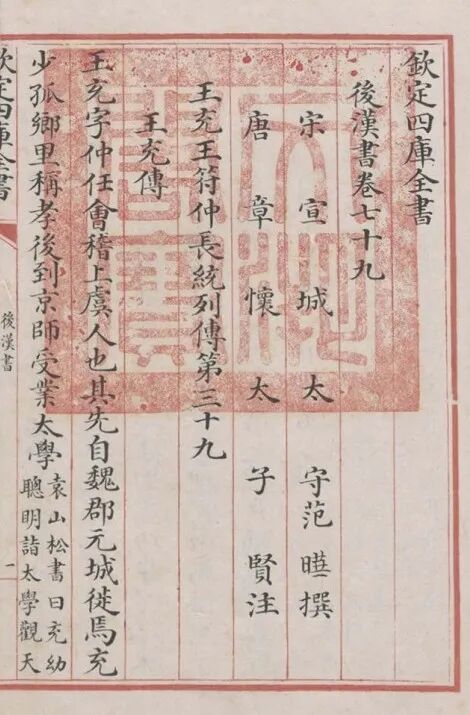 欽定四庫全書
後漢書卷七十九
宋宣城太守范曄撰
唐章懷太子賢注
王充王符仲長統列傳第三十九
王充傳
王充字仲任會稽上虞人也其先自魏郡元城徙焉充
少孤鄉里稱孝後到京師受業太學
袁山松書曰充幼
聰明詣太學觀天
欽定四庫全書
後漢書
一